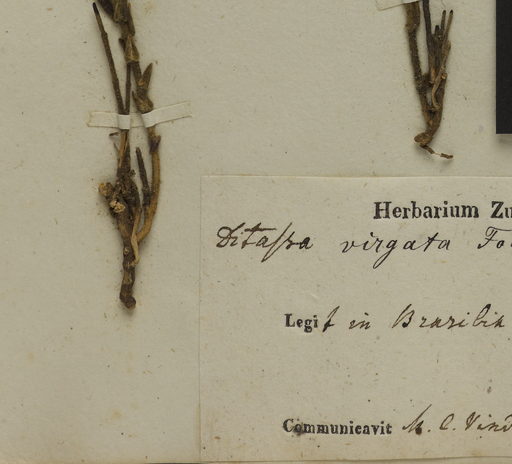 Herbarium Zu
Ditassa virgata Fo
Legit in Brasilia
Communicavit M. C. Vind